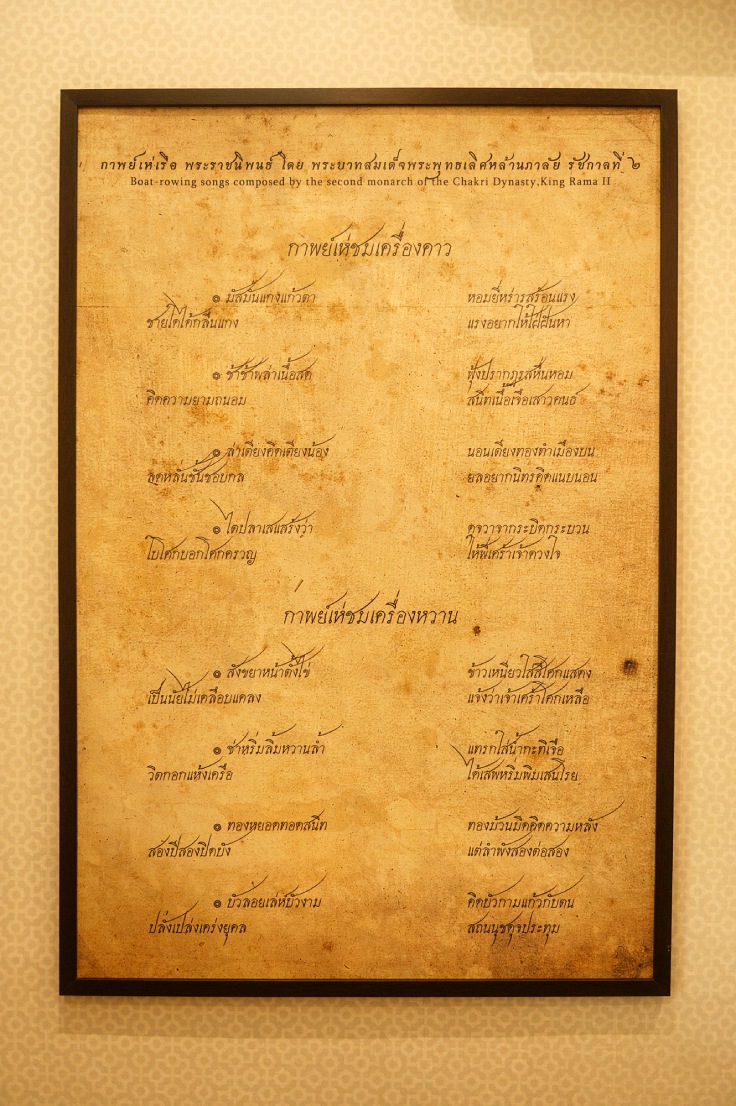 กาพย์เห่เรือ พระราชนิพนธ์ โดย พระบาทสมเด็จพระพุทธเลิศหล้านภาลัย รัชกาลที่ ๒
Boat-rowing songs composed by the second monarch of the Chakri Dynasty,King Rama II
กาพย์เห่ชมเครื่องคาว
๏ มัสมั่นแกงแก้วตา หอมยี่หร่ารสร้อนแรง
ชายใดได้กลืนแกง แรงอยากให้ใฝ่ฝันหา
๏ ช้าช้าพล่าเนื้อสด ฟุ้งปรากฏรสหื่นหอม
คิดความยามถนอม สนิทเนื้อเจือเสาวคนธ์
๏ ล่าเตียงคิดเตียงน้อง นอนเตียงทองทำเมืองบน
ลดหลั่นชั้นชอบกล ยลอยากนิทรคิดแนบนอน
๏ ไตปลาเสแสร้งว่า ดุจวาจากระบิดกระบวน
ใบโศกบอกโศกครวญ ให้พี่เคร่าเจ้าดวงใจ
กาพย์เห่ชมเครื่องหวาน
๏ สังขยาหน้าตั้งไข่ ข้าวเหนียวใส่สีโศกแสดง
เป็นนัยไม่เคลือบแคลง แจ้งว่าเจ้าเศร้าโศกเหลือ
๏ ซ่าหริ่มลิ้มหวานล้ำ แทรกใส่น้ำกะทิเจือ
วิตกอกแห้งเครือ ได้เสพหริ่มพิมเสนโรย
๏ ทองหยอดทอดสนิท ทองม้วนมิดคิดความหลัง
สองปีสองปิดบัง แต่ลำพังสองต่อสอง
๏ บัวลอยเล่ห์บัวงาม คิดบัวกามแก้วกับตน
ปลั่งเปล่งเคร่งยุคล สถนนุชดุจประทุม